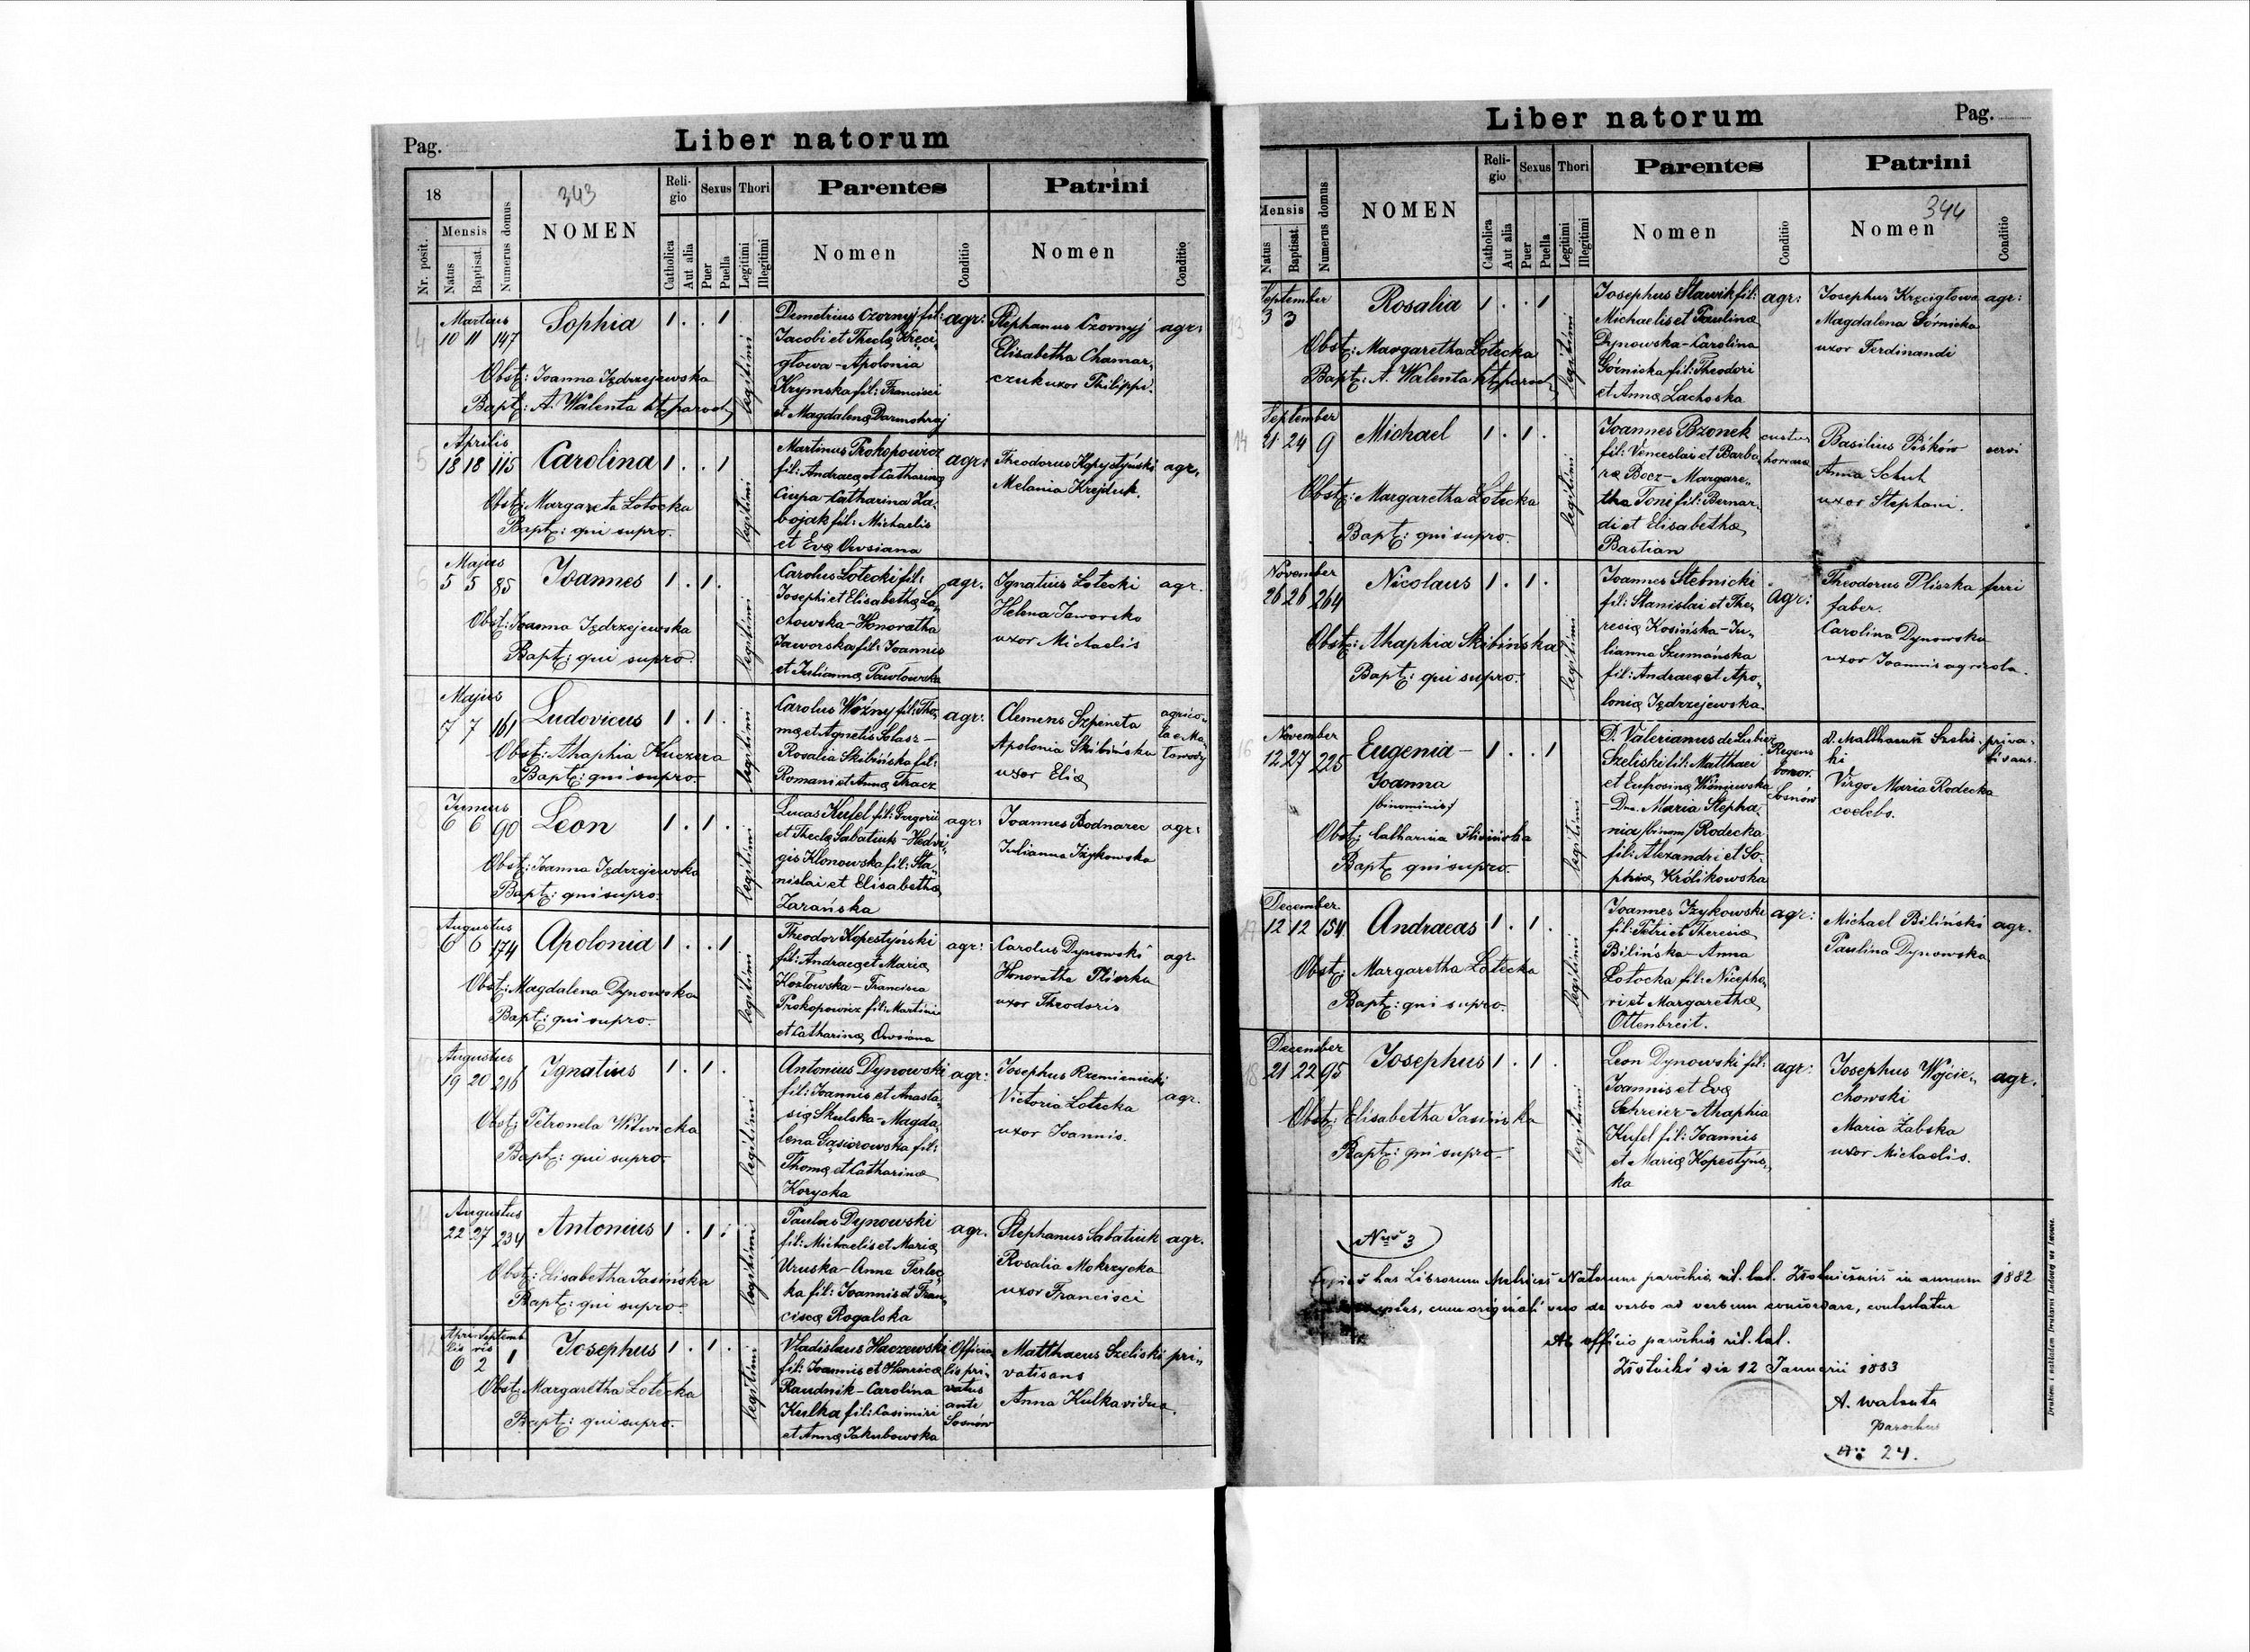 Pag.
Liber natorum
18
343
Nr. posit.
Mensis
Natus
Baptisat.
Numerus domus
NOMEN
Religio
Catholica
Aut alia
Sexus
Puer
Puella
Thori
Legitimi
Illegitimi
Parentes
Nomen
Conditio
Patrini
Nomen
Conditio
4
Martius
10 11 147
Sophia
1 . . 1
legitimi
Obst: Joanna Jędrzejewska
Bapt: A. Walenta
Demetrius Czornyj fil:
Jacobi et Theclæ Kręci,
głowa - Apolonia
Krymska fil: Francisci
et Magdalenæ Darmohraj
agr:
Stephanus Czornyj
Elisabetha Chamar,
czuk uxor Philippi.
agr:
5
Aprilis
18 18 115
Carolina
1 . . 1
legitimi
Obst: Margareta Lotocka
Bapt: qui supro.
Martinus Prokopowicz
fil: Andraeæ et Catharinæ
Ciupa - Catharina Za,
bojak fil: Michaelis
et Evæ Owsiana
agr:
Theodorus Kopystyński
Melania Krejduk.
agr,
6
Majus
5 5 85
Joannes
1 . 1 .
legitimi
Obst: Joanna Jędrzejewska
Bapt: qui supro.
Carolus Lotecki fil:
Josephi et Elisabethæ La,
chowska - Honoratha
Jaworska fil: Joannis
et Juliannæ Pawłowska
agr.
Ignatius Lotecki
Helena Jaworsko
uxor Michaelis
agr.
7
Majus
7 7 161
Ludovicus
1 . 1 .
legitimi
Obst: Ahaphia Kuczera
Bapt: qui supro.
Carolus Woźny fil: Tho,
mæ et Agnetis Solasz -
Rosalia Skibińska fil:
Romani et Annæ Tkacz
agr:
Clemens Szpineta
Apolonia Skibińska
uxor Eliæ
agrico,
la e Ma,
łowody
8
Junius
6 6 90
Leon
1 . 1 .
legitimi
Obst: Joanna Jędrzejewska
Bapt: qui supro.
Lucas Kufel fil: Gregorii
et Theclæ Sabatiuk - Hedvi,
gis Klonowska fil: Sta,
nislai et Elisabethæ
Zarańska
agr:
Joannes Bodnarec
Julianna Iżykowska
agr:
9
Augustus
6 6 174
Apolonia
1 . . 1
legitimi
Obst: Magdalena Dynowska
Bapt: qui supro.
Theodor Kopestyński
fil: Andraeæ et Mariæ
Kozłowska - Francisca
Prokopowicz fil: Martini
et Catharinæ Owsiana
agr:
Carolus Dynowski
Honoratha Pliszka
uxor Theodoris
agr.
10
Augustus
19 20 216
Ignatius
1 . 1 .
legitimi
Obst: Petronela Witwicka
Bapt: qui supro.
Antonius Dynowski
fil: Joannis et Anasta,
siæ Skulska - Magda,
lena Gąsiorowska fil:
Thomæ et Catharinæ
Korycka
agr:
Josephus Rzemieniecki
Victoria Lotecka
uxor Joannis.
agr.
11
Augustus
22 27 234
Antonius
1 . 1 .
legitimi
Obst: Elisabetha Jasińska
Bapt: qui supro.
Paulus Dynowski
fil: Michaelis et Mariæ
Uruska - Anna Terlec,
ka fil: Joannis et Fran,
ciscæ Rogalska
agr.
Stephanus Sabatiuk
Rosalia Mokrzycka
uxor Francisci
agr.
12
Aprilis Septembris
6 2 1
Josephus
1 . 1 .
legitimi
Obst: Margaretha Lotecka
Bapt: qui supro.
Vladislaus Haczewski
fil: Joannis et Henricæ
Raudnik - Carolina
Kulka fil: Casimiri
et Annæ Jakubowska
Officia,
lis pri,
vatus
ante
Sosnów
Matthaeus Szeliski pri,
vatisans
Anna Kulka vidua.
Liber natorum
Pag.
344
Mensis
Natus
Baptisat.
Numerus domus
NOMEN
Religio
Catholica
Aut alia
Sexus
Puer
Puella
Thori
Legitimi
Illegitimi
Parentes
Nomen
Conditio
Patrini
Nomen
Conditio
13
September
3 3
Rosalia
1 . . 1
legitimi
Obst: Margaretha Lotecka
Bapt: A. Walenta
Josephus Sławik fil:
Michaelis et Paulinæ
Dynowska - Carolina
Górnicka fil: Theodori
et Annæ Lachoska
agr:
Josephus Kręcigłowa
Magdalena Górnicka
uxor Ferdinandi
agr:
14
September
21 24 9
Michael
1 . 1 .
legitimi
Obst: Margaretha Lotecka
Bapt: qui supro.
Joannes Bzonek
fil: Venceslai et Barba,
ræ Bocz - Margare,
tha Toni fil: Bernar,
di et Elisabethæ
Bastian
custus
Basilius Pińków
Anna Schuh
uxor Stephani.
servi
15
November
26 26 264
Nicolaus
1 . 1 .
legitimi
Obst: Ahaphia Skibińska
Bapt: qui supro.
Joannes Slebnicki
fil: Stanislai et The,
resiæ Kosińska - Ju,
lianna Szumańska
fil: Andraeæ et Apo,
loniæ Jędrzejewska.
agr:
Theodorus Pliszka ferri
faber.
Carolina Dynowska
uxor Joannis agricola.
16
November
12 27 225
Eugenia -
Joanna
/binominis/
1 . . 1
legitimi
Obst: Catharina Fliwińska
Bapt: qui supro.
D. Valerianus de Lubicz
Szeliski fil: Matthaei
et Eufrosinæ Wiśniewska
- Dna. Maria Stepha,
nia /binom/ Rodecka
fil: Alexandri et So,
phiæ Królikowska
Regens
bonor.
Sosnów
d. Matthaeus Szelis,
ki
Virgo Maria Rodecka
coelebs.
priva,
tisans.
17
December
12 12 154
Andraeas
1 . 1 .
legitimi
Obst: Margaretha Lotecka
Bapt: qui supro.
Joannes Iżykowski
fil: Petri et Theresiæ
Bilińska - Anna
Lotocka fil: Nicepho,
ri et Margarethæ
Ottenbreit.
agr:
Michael Biliński
Paulina Dynowska
agr.
18
December
21 22 95
Josephus
1 . 1 .
legitimi
Obst: Elisabetha Jasińska
Bapt: qui supro.
Leon Dynowski fil:
Joannis et Evæ
Schreier - Ahaphia
Kufel fil: Joannis
et Mariæ Kopestyńs,
ka
agr:
Josephus Wojcie,
chowski
Maria Żabska
uxor Michaelis.
agr.
Nus 3
has Librorum Metrices Natorum parochiæ rit. lat. in annum 1882
cum originali suo de verbo ad verbum concordare, contestatur
Ab officio parochiæ rit. lat.
Złotniki die 12 Januarii 1883
A. Walenta
parochus
24.
Drukiem i nakładem Drukarni Ludowej we Lwowie.